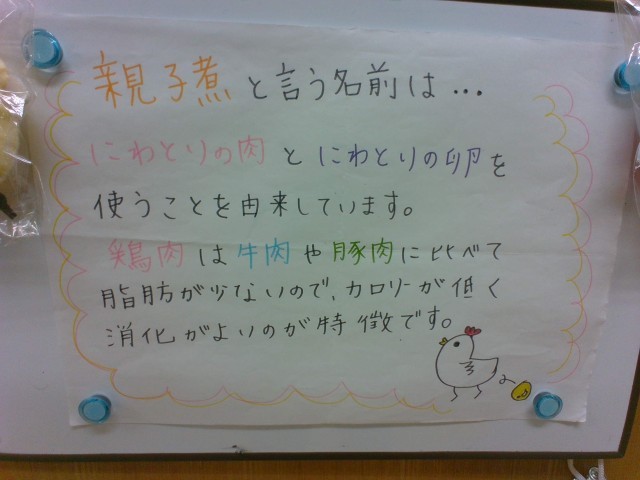 親子煮と言う名前は...
にわとりの肉とにわとりの卵を
使うことを由来しています。
鶏肉は牛肉や豚肉に比べて
脂肪が少ないので、カロリーが低く
消化がよいのが特徴です。